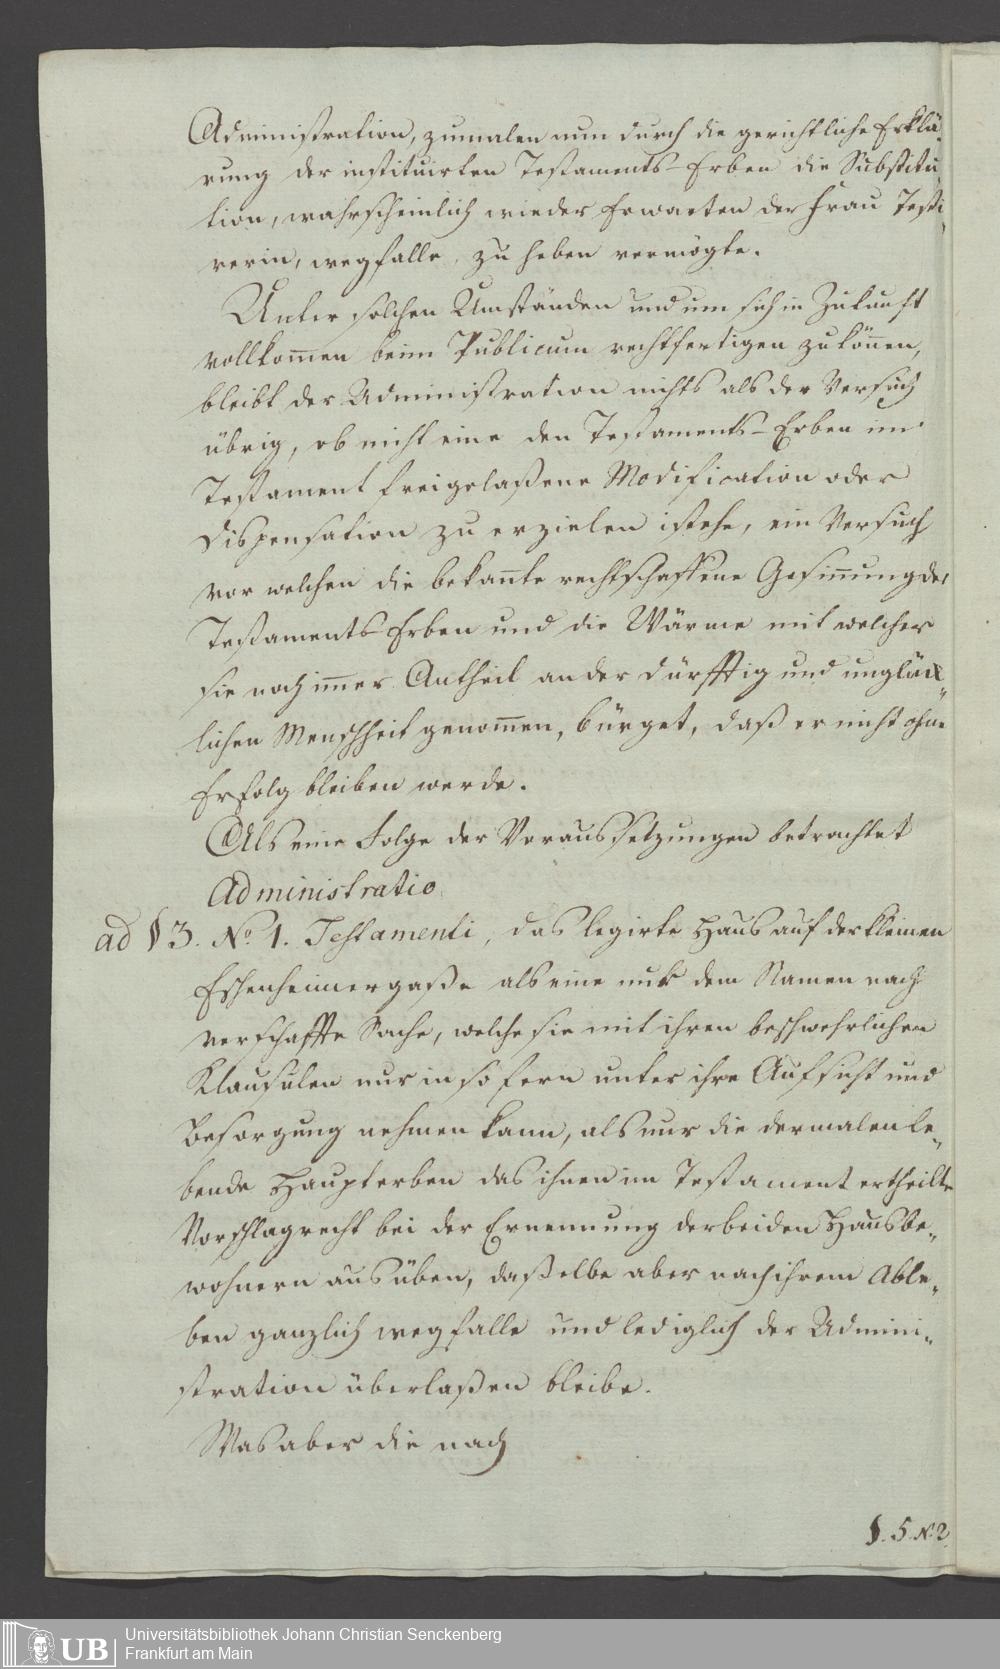 Administration, zumalen nun durch die gerichtliche Erklä-
rung der instituirten Testaments-Erben die Substitu-
tion, wahrscheinlich wieder Erwarten der Frau Testi-
rerin, wegfalle, zu heben vermögte.
Unter solchen Umständen und um sich in Zukunft
vollkom̄en beim Publicum rechtfertigen zu kön̄en,
bleibt der Administration nichts als der Versuch
übrig, ob nicht eine den Testaments-Erben im
Testament freigelaßene Modification oder
Dispensation zu erzielen stehe, ein Versuch
vor welchen die bekan̄te rechtschaffene Gesin̄ung der
Testaments Erben und die Wärme mit welcher
sie noch im̄er Antheil an der dürfftig und unglück-
lichen Menschheit genom̄en, bürget, daß er nicht ohne
Erfolg bleiben werde.
Als eine Folge der Voraussetzungen betrachtet
Administratio
ad § 3. No. 1. Testamenti, das legirte Haus auf der kleinen
Eschenheimergaße als eine nur dem Namen nach
verschaffte Sache, welche sie mit ihren beschwehrlichen
Klausulen nur in so fern unter ihre Aufsicht und
Besorgung nehmen kann, als nur die dermalen le-
bende Haupterben das ihnen im Testament ertheilte
Vorschlagrecht bei der Ernennung der beiden Hausbe-
wohnern ausüben, daßelbe aber nach ihrem Able-
ben ganzlich wegfalle und lediglich der Admini-
stration überlaßen bleibe.
Was aber die nach
§. 5. No. 2.
Universitätsbibliothek Johann Christian Senckenberg
Frankfurt am Main
UB